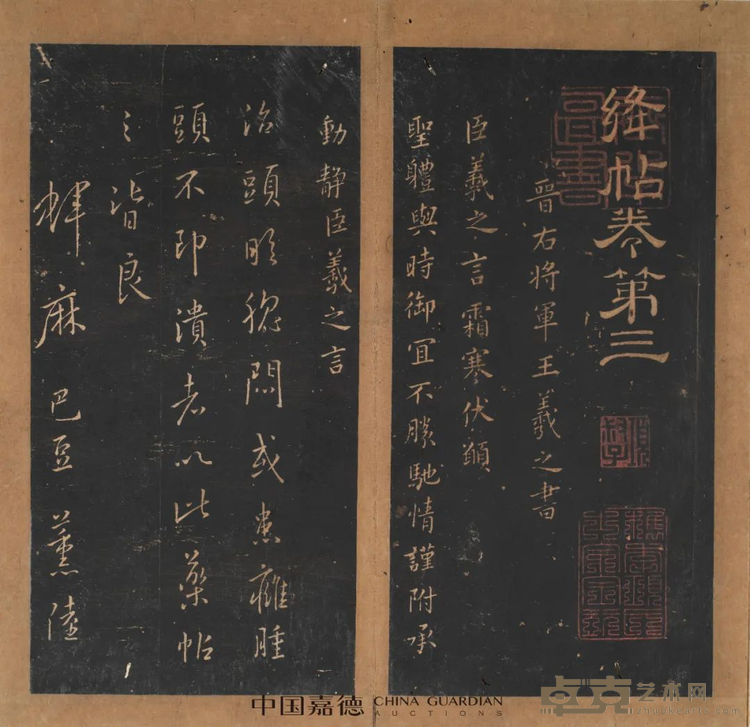 絳帖卷第三
晉右將軍王羲之書
臣羲之言霜寒伏願
聖體與時御宜不勝馳情謹附承
動靜臣羲之言
治頭眩腦悶或患癰腫
頭不即潰者以此藥帖
之皆良
萆麻 巴豆 薰陸
中国嘉德 CHINA GUARDIAN
AUCTIONS
卓克艺术网